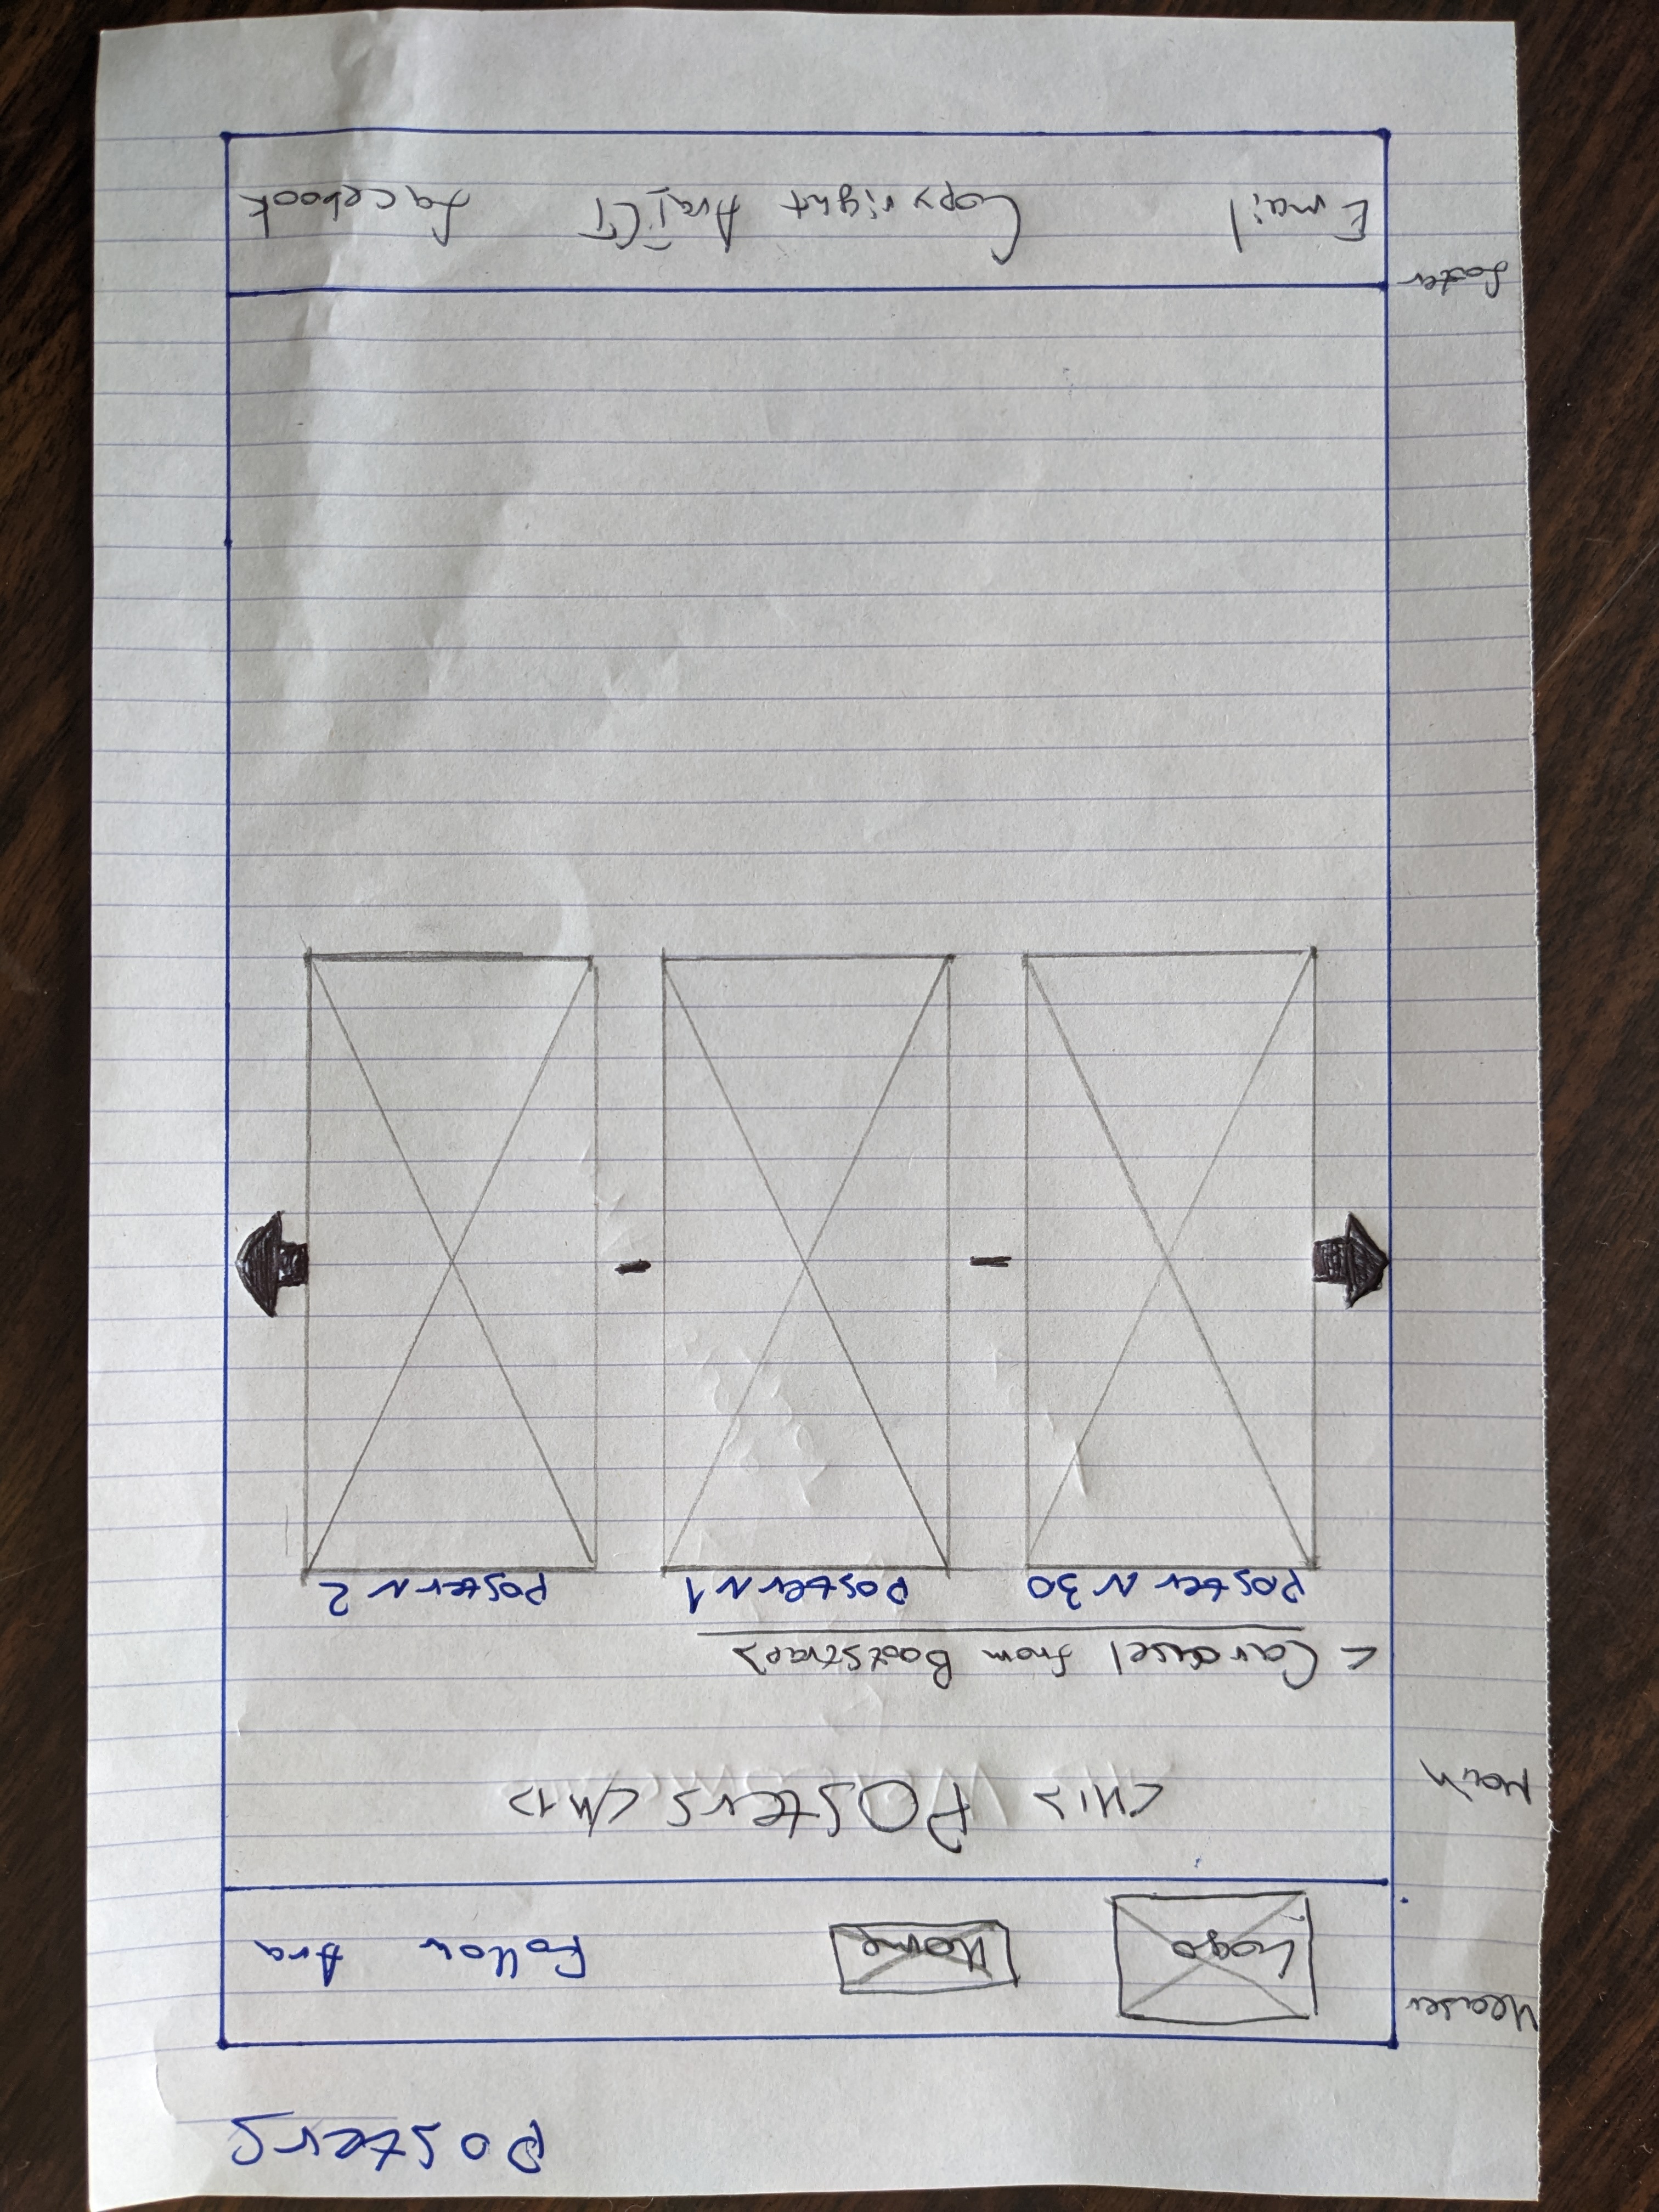 Posters
Header
Logo
Home
Follow Ara
Main
<H1> Posters </h1>
< Carousel from Bootstrap>
Poster N 30
Poster N 1
Poster N 2
footer
Email
Copyright AraICT
facebook